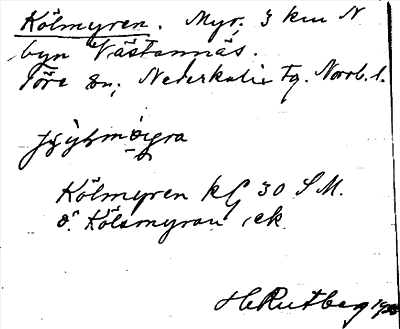 Kölmyren. Myr, 3 km N
byn Västannäs.
Töre sn, Nederkalix tg. Norrb. l.
Kölmyren kG 30 S.M.
o. Kölsmyran, ek.
H Rutberg